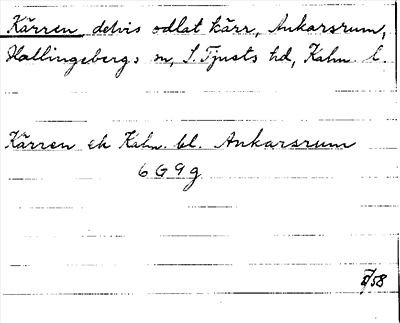 Kärren delvis odlat kärr, Ankarsrum,
Hallingebergs sn, S. Tjusts hd, Kalm. l.
Kärren ek Kalm. bl. Ankarsrum
6 G 9 g
/58